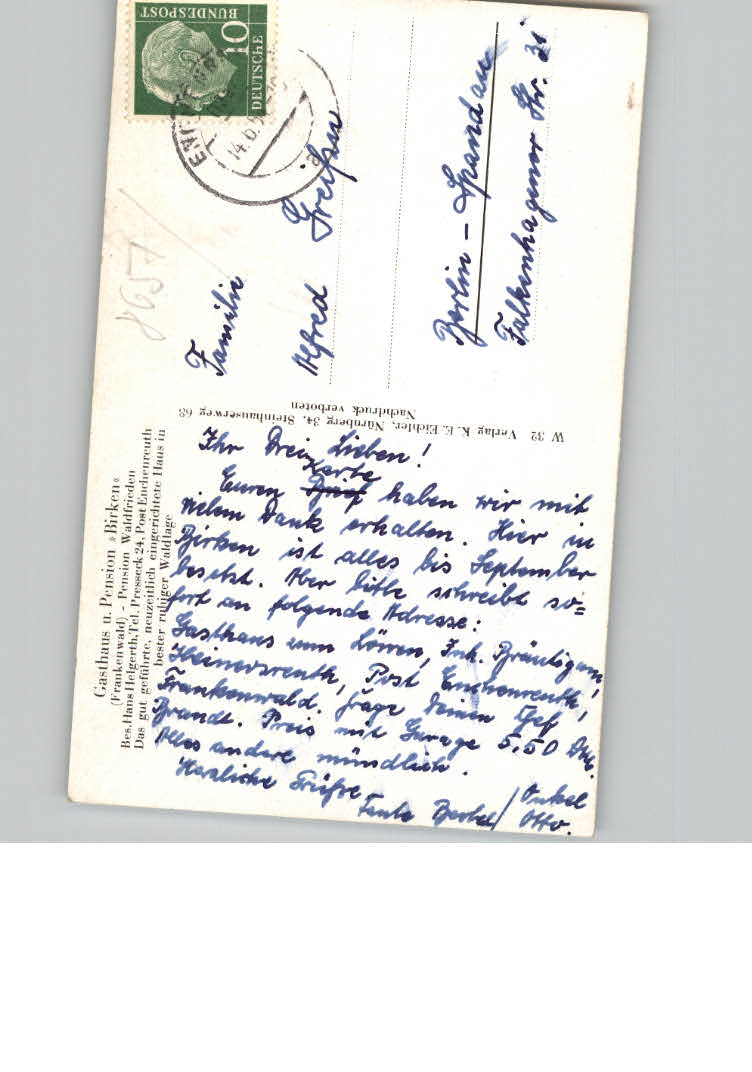 Gasthaus u. Pension »Birken«
(Frankenwald) - Pension Waldfrieden
Bes. Hans Helgerth, Tel. Presseck 24, Post Enchenreuth
Das gut geführte, neuzeitlich eingerichtete Haus in
bester ruhiger Waldlage
Ihr Drei Lieben!
Karte
Euren Brief haben wir mit
vielem Dank erhalten. Hier in
Birken ist alles bis September
besetzt. Aber bitte schreibt so=
fort an folgende Adresse:
Gasthaus zum Löwen, Inh. Bräutigam
Heinersreuth, Post Enchenreuth,
Frankenwald. Frage Deinen Chef
Brandt. Preis mit Garage 5,50 DM.
Alles andere mündlich.
Herzliche Grüsse
Tante Bertel / Onkel
Otto.
W 32 Verlag K. E. Eichler, Nürnberg 34, Steinhauserweg 68
Nachdruck verboten
8657/
10
DEUTSCHE
BUNDESPOST
14.6.5
a
Familie
Alfred
Berlin - Spandau
Falkenhagener Str. 31